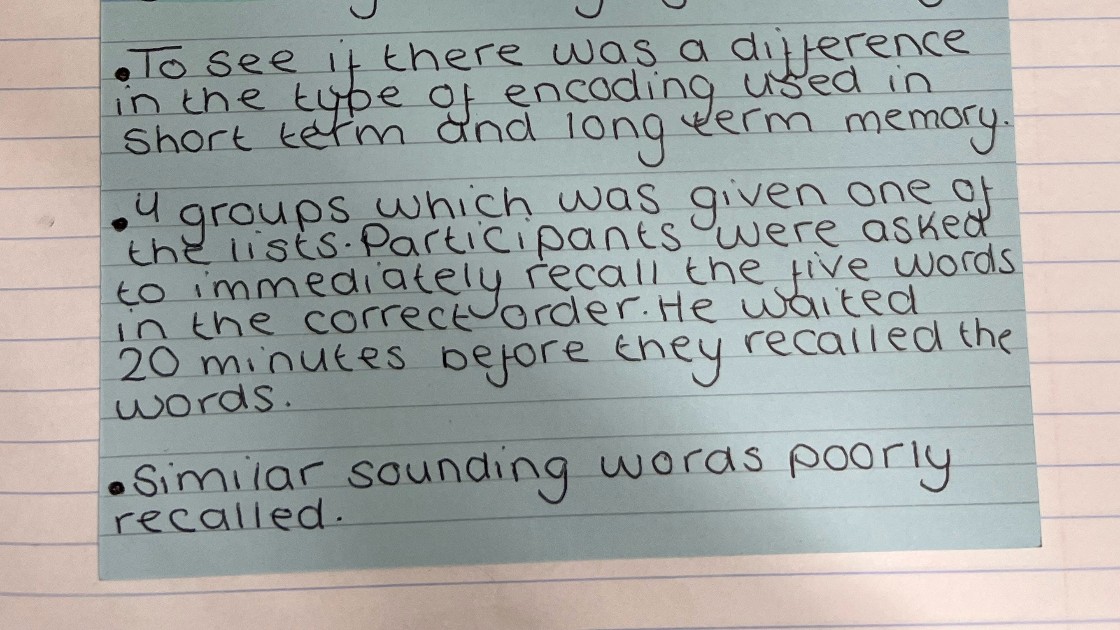 •To see if there was a difference
in the type of encoding used in
short term and long term memory.
•4 groups which was given one of
the lists. Participants were asked
to immediately recall the five words
in the correct order. He waited
20 minutes before they recalled the
words.
•Similar sounding words poorly
recalled.